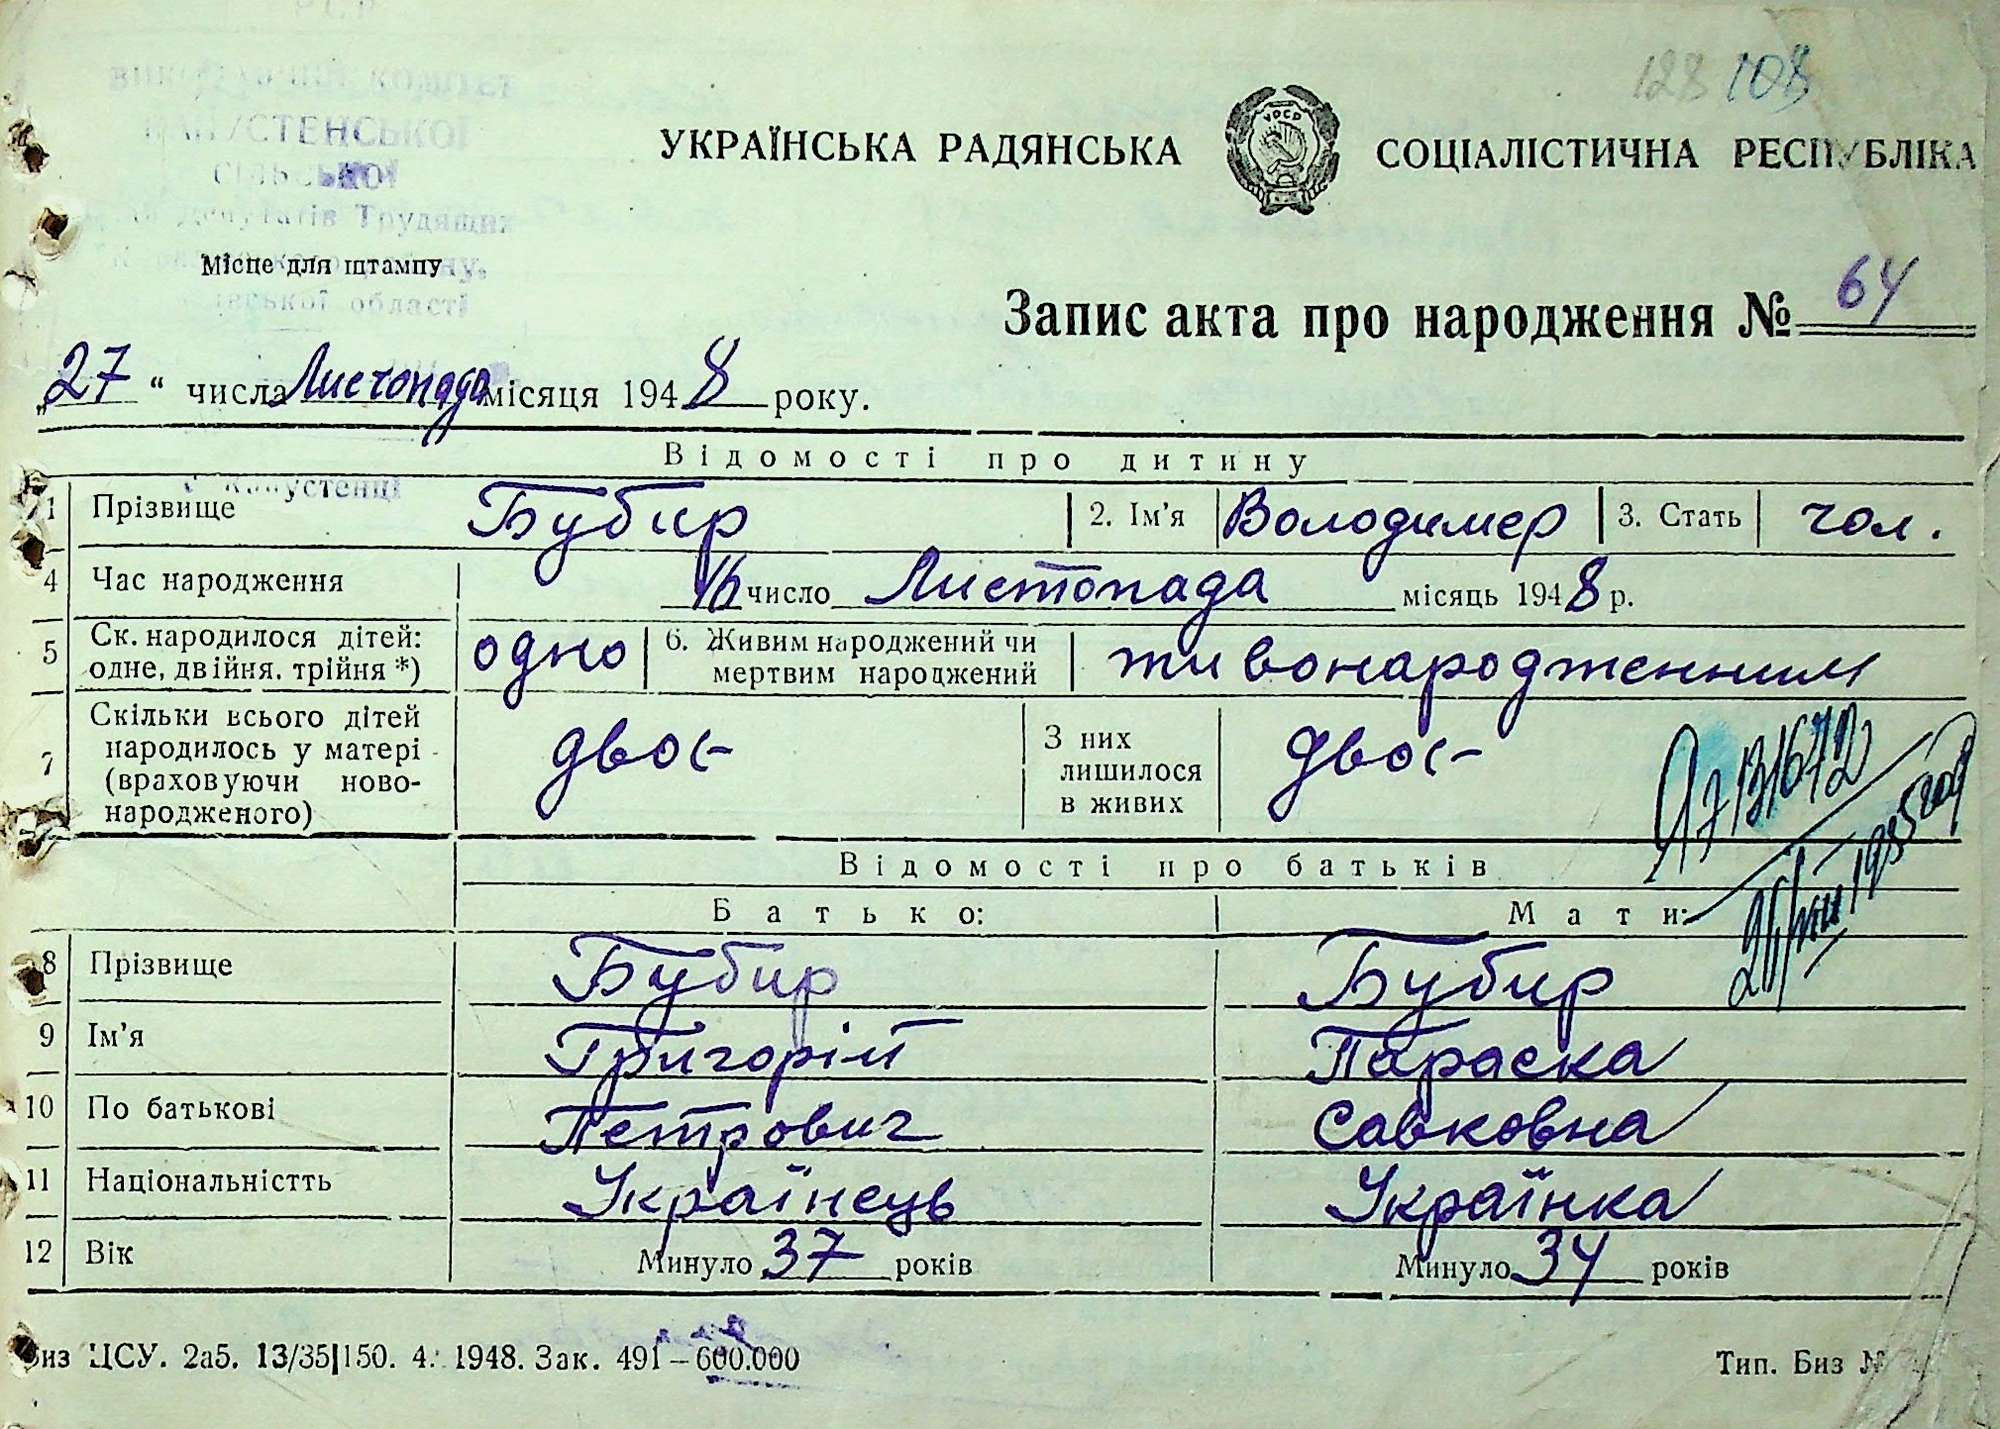 128 108
КОМІТЕТ
СІЛЬСЬКОЇ
Трудящих
області
УКРАЇНСЬКА РАДЯНСЬКА СОЦІАЛІСТИЧНА РЕСПУБЛІКА
УРСР
Місце для штампу
Запис акта про народження № 64
„27“ числа Листопада місяця 1948 року.
Відомості про дитину
с. Капустенці
1 Прізвище Бубир 2. Ім'я Володимер 3. Стать чол.
4 Час народження 16 число Листопада місяць 1948 р.
5 Ск. народилося дітей: одно 6. Живим народжений чи живонародженним
одне, двійня, трійня *) мертвим народжений
7 Скільки всього дітей двоє З них двоє
народилось у матері лишилося
(враховуючи ново- в живих
народженого)
1985 год
Відомості про батьків
Батько: Мати:
8 Прізвище Бубир Бубир
9 Ім'я Григорій Параска
10 По батькові Петрович Савковна
11 Національністть Українець Українка
12 Вік Минуло 37 років Минуло 34 років
Биз ЦСУ. 2а5. 13/35|150. 4. 1948. Зак. 491—600.000 Тип. Биз №